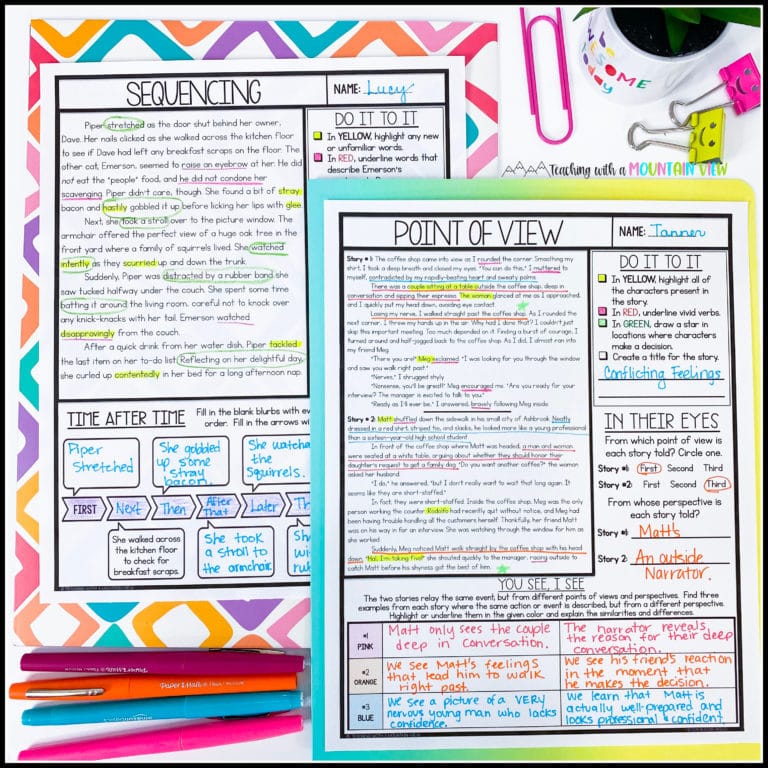 SEQUENCING
NAME: Lucy
Piper stretched as the door shut behind her owner,
Dave. Her nails clicked as she walked across the kitchen floor
to see if Dave had left any breakfast scraps on the floor. The
other cat, Emerson, seemed to raise an eyebrow at her. He did
not eat the "people" food, and he did not condone her
scavenging. Piper didn't care, though. She found a bit of stray
bacon and hastily gobbled it up before licking her lips with glee.
Next, she took a stroll over to the picture window. The
armchair offered the perfect view of a huge oak tree in the
front yard where a family of squirrels lived. She watched
intently as they scurried up and down the trunk.
Suddenly, Piper was distracted by a rubber band she
saw tucked halfway under the couch. She spent some time
batting it around the living room, careful not to knock over
any knick-knacks with her tail. Emerson watched
disapprovingly from the couch.
After a quick drink from her water dish, Piper tackled
the last item on her to-do list. Reflecting on her delightful day,
she curled up contentedly in her bed for a long afternoon nap.
DO IT TO IT
In YELLOW, highlight any new
or unfamiliar words.
In RED, underline words that
describe Emerson's
TIME AFTER TIME
Fill in the blank blurbs with
order. Fill in the arrows
Piper
Stretched
She gobbled
up some
stray
bacon.
She watched
the
squirrels.
FIRST
Next
Then
After
That
Later
She walked
across the
kitchen floor
to check for
breakfast scraps.
She took
a stroll to
the armchair
AWESOME
today
Teaching with a
MOUNTAIN VIEW
POINT OF VIEW
NAME: Tanner
Story #1: The coffee shop came into view as I rounded the corner. Smoothing my
shirt, I took a deep breath and closed my eyes. "You can do this," I muttered to
myself, contradicted by my rapidly-beating heart and sweaty palms.
There was a couple sitting at a table outside the coffee shop, deep in
conversation and sipping their espresso. The woman glanced at me as I approached,
and I quickly put my head down, avoiding eye contact.
Losing my nerve, I walked straight past the coffee shop. As I rounded the
next corner, I threw my hands up in the air. Why had I done that? I couldn't just
skip this important meeting. Too much depended on it. Finding a burst of courage, I
turned around and half-jogged back to the coffee shop. As I did, I almost ran into
my friend Meg.
"There you are!" Meg exclaimed. "I was looking for you through the window
and saw you walk right past."
"Nerves," I shrugged shyly.
"Nonsense, you'll be great!" Meg encouraged me. "Are you ready for your
interview? The manager is excited to talk to you."
"Ready as I'll ever be," I answered, bravely following Meg inside.
Story #2: Matt shuffled down the sidewalk in his small city of Ashbrook. Neatly
dressed in a red shirt, striped tie, and slacks, he looked more like a young professional
than a sixteen-year-old high school student.
In front of the coffee shop where Matt was headed, a man and a woman
were seated at a white table, arguing about whether they should honor their
daughter's request to get a family dog. "Do you want another coffee?" the woman
asked her husband.
"I do," he answered, "but I don't really want to wait that long again. It
seems like they are short-staffed."
In fact, they were short-staffed. Inside the coffee shop, Meg was the only
person working the counter. Rodolfo had recently quit without notice, and Meg had
been having trouble handling all the customers herself. Thankfully, her friend Matt
was on his way in for an interview. She was watching through the window for him as
she worked.
Suddenly, Meg noticed Matt walk straight by the coffee shop with his head
down. "Hal, I'm taking five!" she shouted quickly to the manager, racing outside to
catch Matt before his shyness got the best of him.
DO IT TO IT
In YELLOW, highlight all of
the characters present in
the story.
In RED, underline vivid verbs.
In GREEN, draw a star in
locations where characters
make a decision.
Create a title for the story.
Conflicting Feelings
IN THEIR EYES
From which point of view is
each story told? Circle one.
Story #1: First Second Third
Story #2: First Second Third
From whose perspective is
each story told?
Story #1: Matt's
Story 2: An outside
Narrator.
YOU SEE, I SEE
The two stories relay the same event, but from different points of views and perspectives. Find three
examples from each story where the same action or event is described, but from a different perspective.
Highlight or underline them in the given color and explain the similarities and differences.
#1
PINK
Matt only sees the couple
deep in conversation.
The narrator reveals
the reason for their deep
conversation.
#2
ORANGE
We see Matt's feelings
that lead him to walk
right past.
We see his friend's reaction
in the moment that
he makes the decision.
#3
BLUE
We see a picture of a VERY
nervous young man who lacks
confidence.
We learn that Matt is
actually well-prepared and
looks professional & confident.